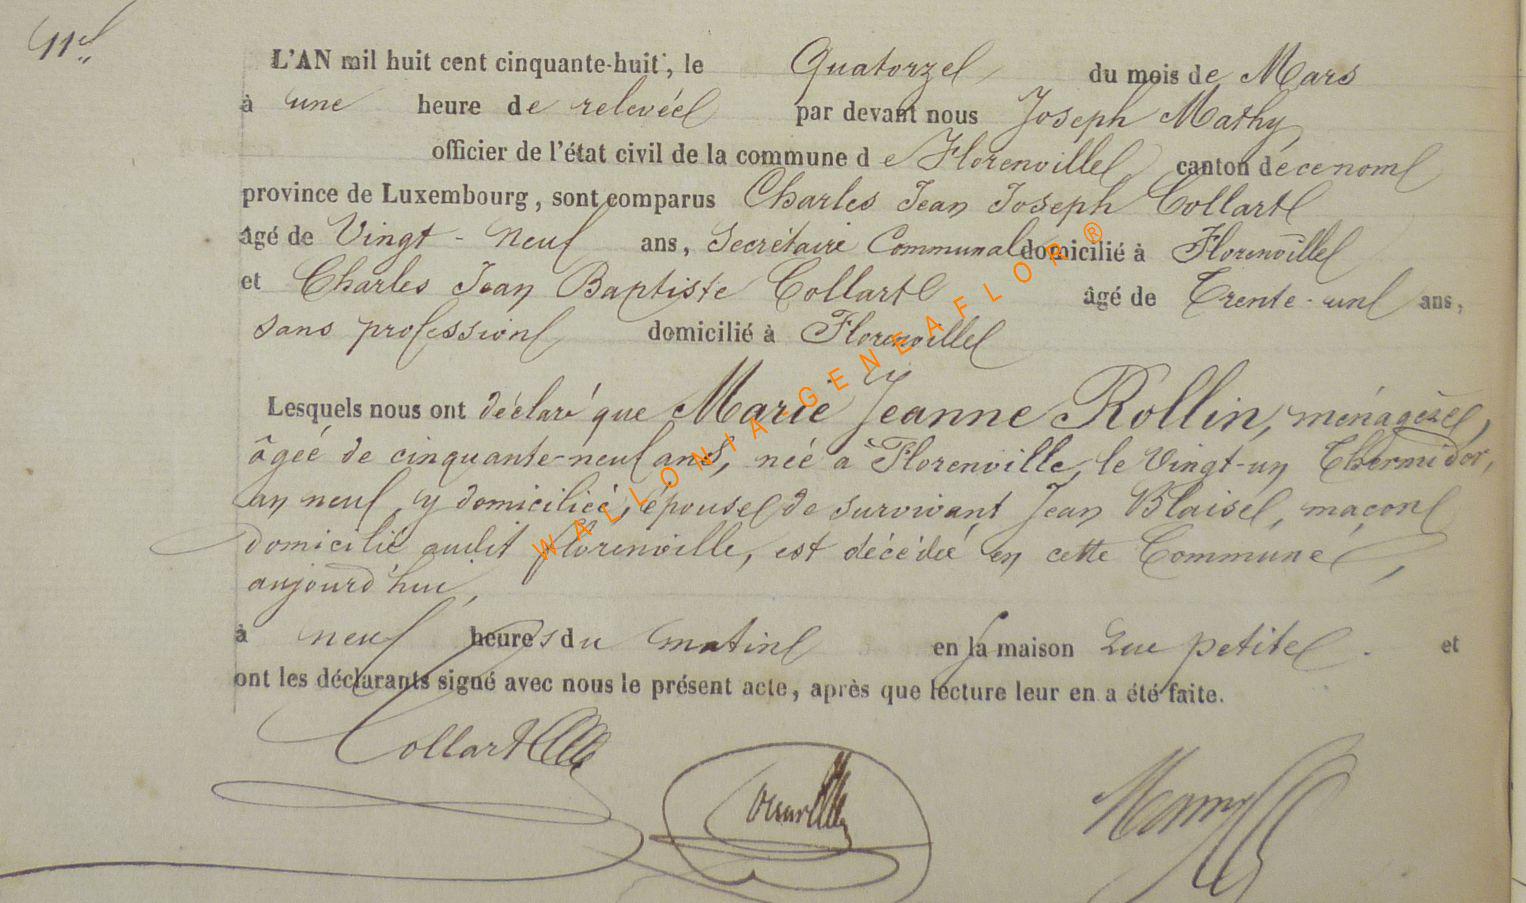 11
L'AN mil huit cent cinquante-huit, le Quatorze du mois de Mars
à une heure de relevée par devant nous Joseph Mathy
officier de l'état civil de la commune de Florenville canton de ce nom
province de Luxembourg, sont comparus Charles Jean Joseph Collart
âgé de Vingt-neuf ans, Secrétaire Communal domicilié à Florenville
et Charles Jean Baptiste Collart âgé de Trente-un ans,
sans profession domicilié à Florenville
Lesquels nous ont déclaré que Marie Jeanne Rollin, ménagère,
âgée de cinquante-neuf ans, née à Florenville, le Vingt-un Thermidor,
an neuf, y domiciliée, épouse de survivant Jean Blaise, maçon
domicilié audit florenville, est décédée en cette Commune,
aujourd'hui,
à neuf heures du matin en sa maison Rue petite. et
ont les déclarants signé avec nous le présent acte, après que lecture leur en a été faite.
Collart
WALLONIA-GENEAFLOR ®